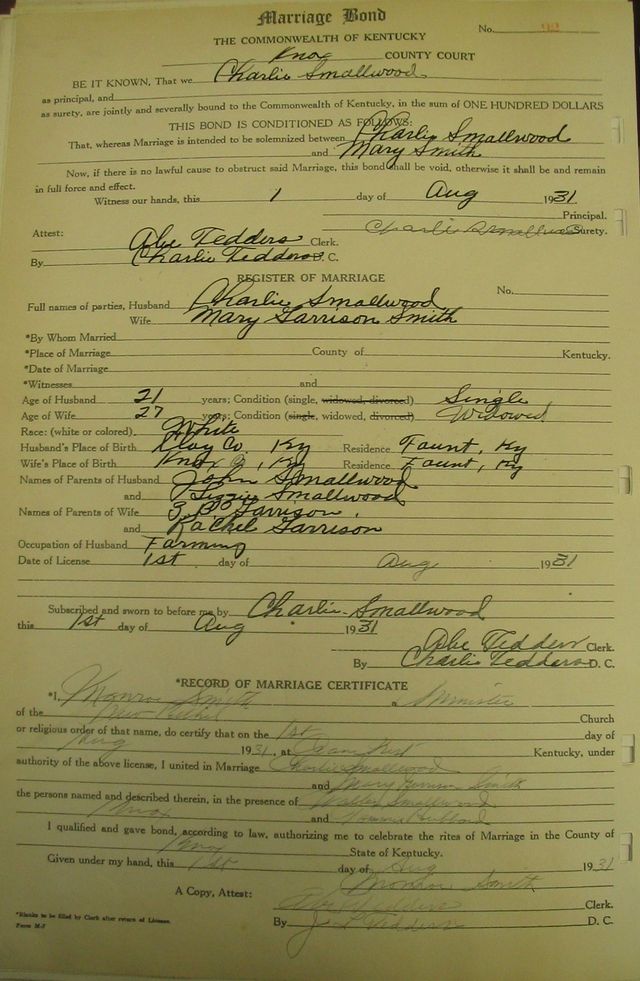 Marriage Bond
No. 92
THE COMMONWEALTH OF KENTUCKY
Knox COUNTY COURT
BE IT KNOWN, That we Charlie Smallwood
as principal, and
as surety, are jointly and severally bound to the Commonwealth of Kentucky, in the sum of ONE HUNDRED DOLLARS
THIS BOND IS CONDITIONED AS FOLLOWS:
That, whereas Marriage is intended to be solemnized between Charlie Smallwood
and Mary Smith
Now, if there is no lawful cause to obstruct said Marriage, this bond shall be void, otherwise it shall be and remain
in full force and effect.
Witness our hands, this 1 day of Aug 1931
Principal.
Charlie Smallwood Surety.
Attest: Abe Tedders Clerk.
By Charlie Tedders D. C.
REGISTER OF MARRIAGE
No.
Full names of parties, Husband Charlie Smallwood
Wife Mary Garrison Smith
*By Whom Married
*Place of Marriage County of Kentucky.
*Date of Marriage
*Witnesses and
Age of Husband 21 years; Condition (single, widowed, divorced) Single
Age of Wife 27 years; Condition (single, widowed, divorced) Widowed
Race: (white or colored) White
Husband's Place of Birth Clay Co, Ky Residence Faunt, Ky
Wife's Place of Birth Knox Co, Ky Residence Faunt, Ky
Names of Parents of Husband John Smallwood
and Smallwood
Names of Parents of Wife Garrison
and Rachel Garrison
Occupation of Husband Farming
Date of License 1st day of Aug 1931
Subscribed and sworn to before me by Charlie Smallwood
this 1st day of Aug 1931
Abe Tedders Clerk.
By Charlie Tedders D. C.
*RECORD OF MARRIAGE CERTIFICATE
*I, Monroe Smith a Minister
of the New Bethel Church
or religious order of that name, do certify that on the 1st day of
Aug 1931, at Kentucky, under
authority of the above license, I united in Marriage Charlie Smallwood
and Mary Garrison Smith
the persons named and described therein, in the presence of Smallwood
and
I qualified and gave bond, according to law, authorizing me to celebrate the rites of Marriage in the County of
Knox State of Kentucky.
Given under my hand, this 1st day of Aug 1931
Monroe Smith
A Copy, Attest: Clerk.
By D. C.
*Blanks to be filled by Clerk after return of License.
Form M-7